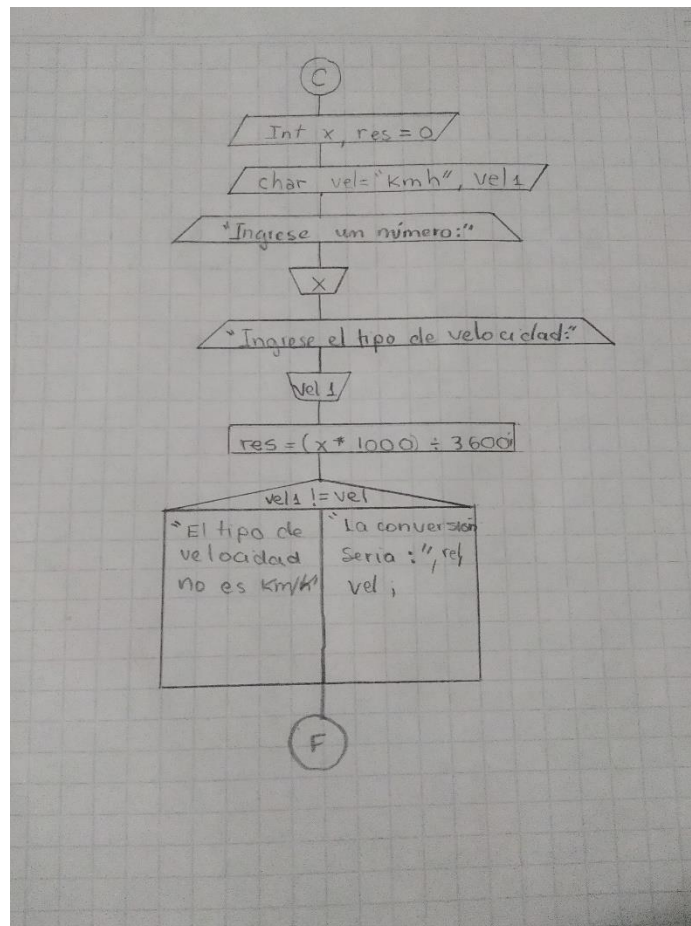 C
Int x, res = 0
char vel="kmh", vel1
"Ingrese un número:"
x
"Ingrese el tipo de velocidad:"
vel 1
res = (x * 1000) ÷ 3600;
vel1 != vel
"El tipo de
velocidad
no es Km/h"
"La conversión
Seria :",
vel ;
F